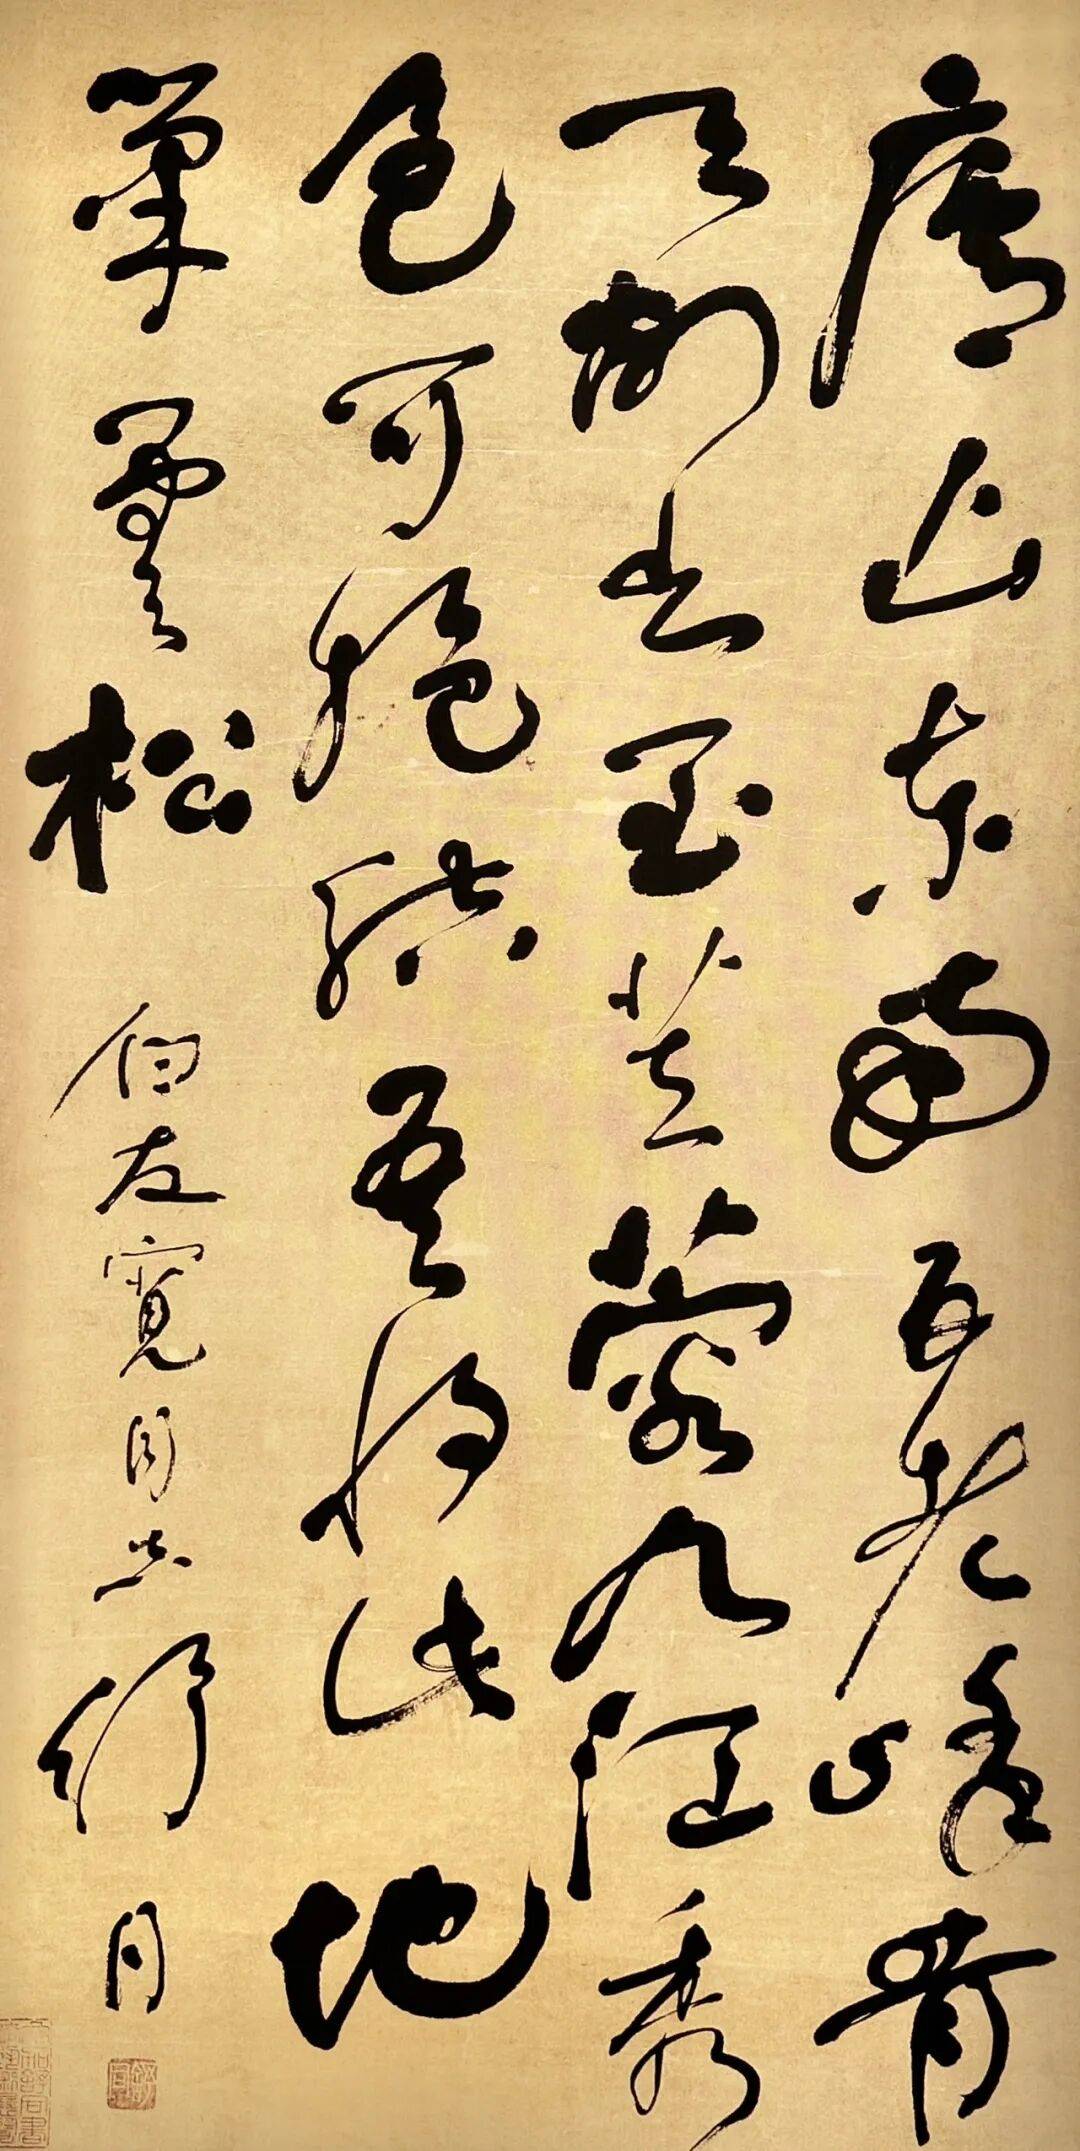 廬山東南五老峰青
天削出金芙蓉九江秀
色可挹結吾將此地
巢雲松 友寬同志 舒同